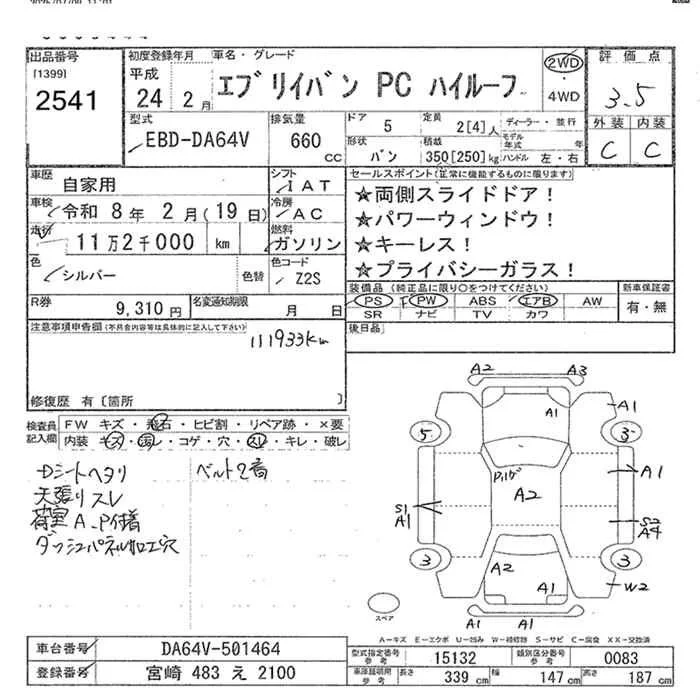 出品番号
[1399]
2541
初度登録年月
平成
24 年 2 月
車名・グレード
エブリイバン PC ハイルーフ
2WD
4WD
評価点
3.5
外装 内装
C C
型式
EBD-DA64V
排気量
660 CC
ドア 5
定員 2[4]人
ディーラー・並行
形状 バン
積載 350[250]kg
モデル年式 年
ハンドル 左・右
車歴 自家用
シフト IAT
車検 令和 8年 2月(19日)
冷房 AC
走行 11万2千000 km
燃料 ガソリン
色 シルバー 色替
色コード Z2S
R券 9,310円
名変通知期限 月 日
セールスポイント(正常に機能するものに限ります)
★両側スライドドア!
★パワーウィンドウ!
★キーレス!
★プライバシーガラス!
装備品(純正品に限り○をつけてください)
PS PW ABS エアB AW
SR ナビ TV カワ
新車保証書
有・無
後日品
注意事項申告欄(不具合内容等は具体的に記入して下さい)
111933km
修復歴 有〔箇所 〕
検査員記入欄
FW キズ・飛石・ヒビ割・リペア跡・×要
内装 キズ・汚レ・コゲ・穴・スレ・キレ・破レ
Dシートヘタリ
天張りスレ
荷室A、P付着
ダッシュパネル加工穴
ベルト2番
A2 A3
A1 A1
5 3
Pハゲ
A2
A1
S1
A1
S2
A4
3 3
A2
A1
W2
A1 A1
スペア
A-キズ E-エクボ U-凹み W-補修跡 S-サビ C-腐食 XX-交換済
車台番号 DA64V-501464
登録番号 宮崎 483 え 2100
型式指定番号 参考 15132
類別区分番号 参考 0083
車庫証明用 参考 長さ 339 cm 幅 147 cm 高さ 187 cm